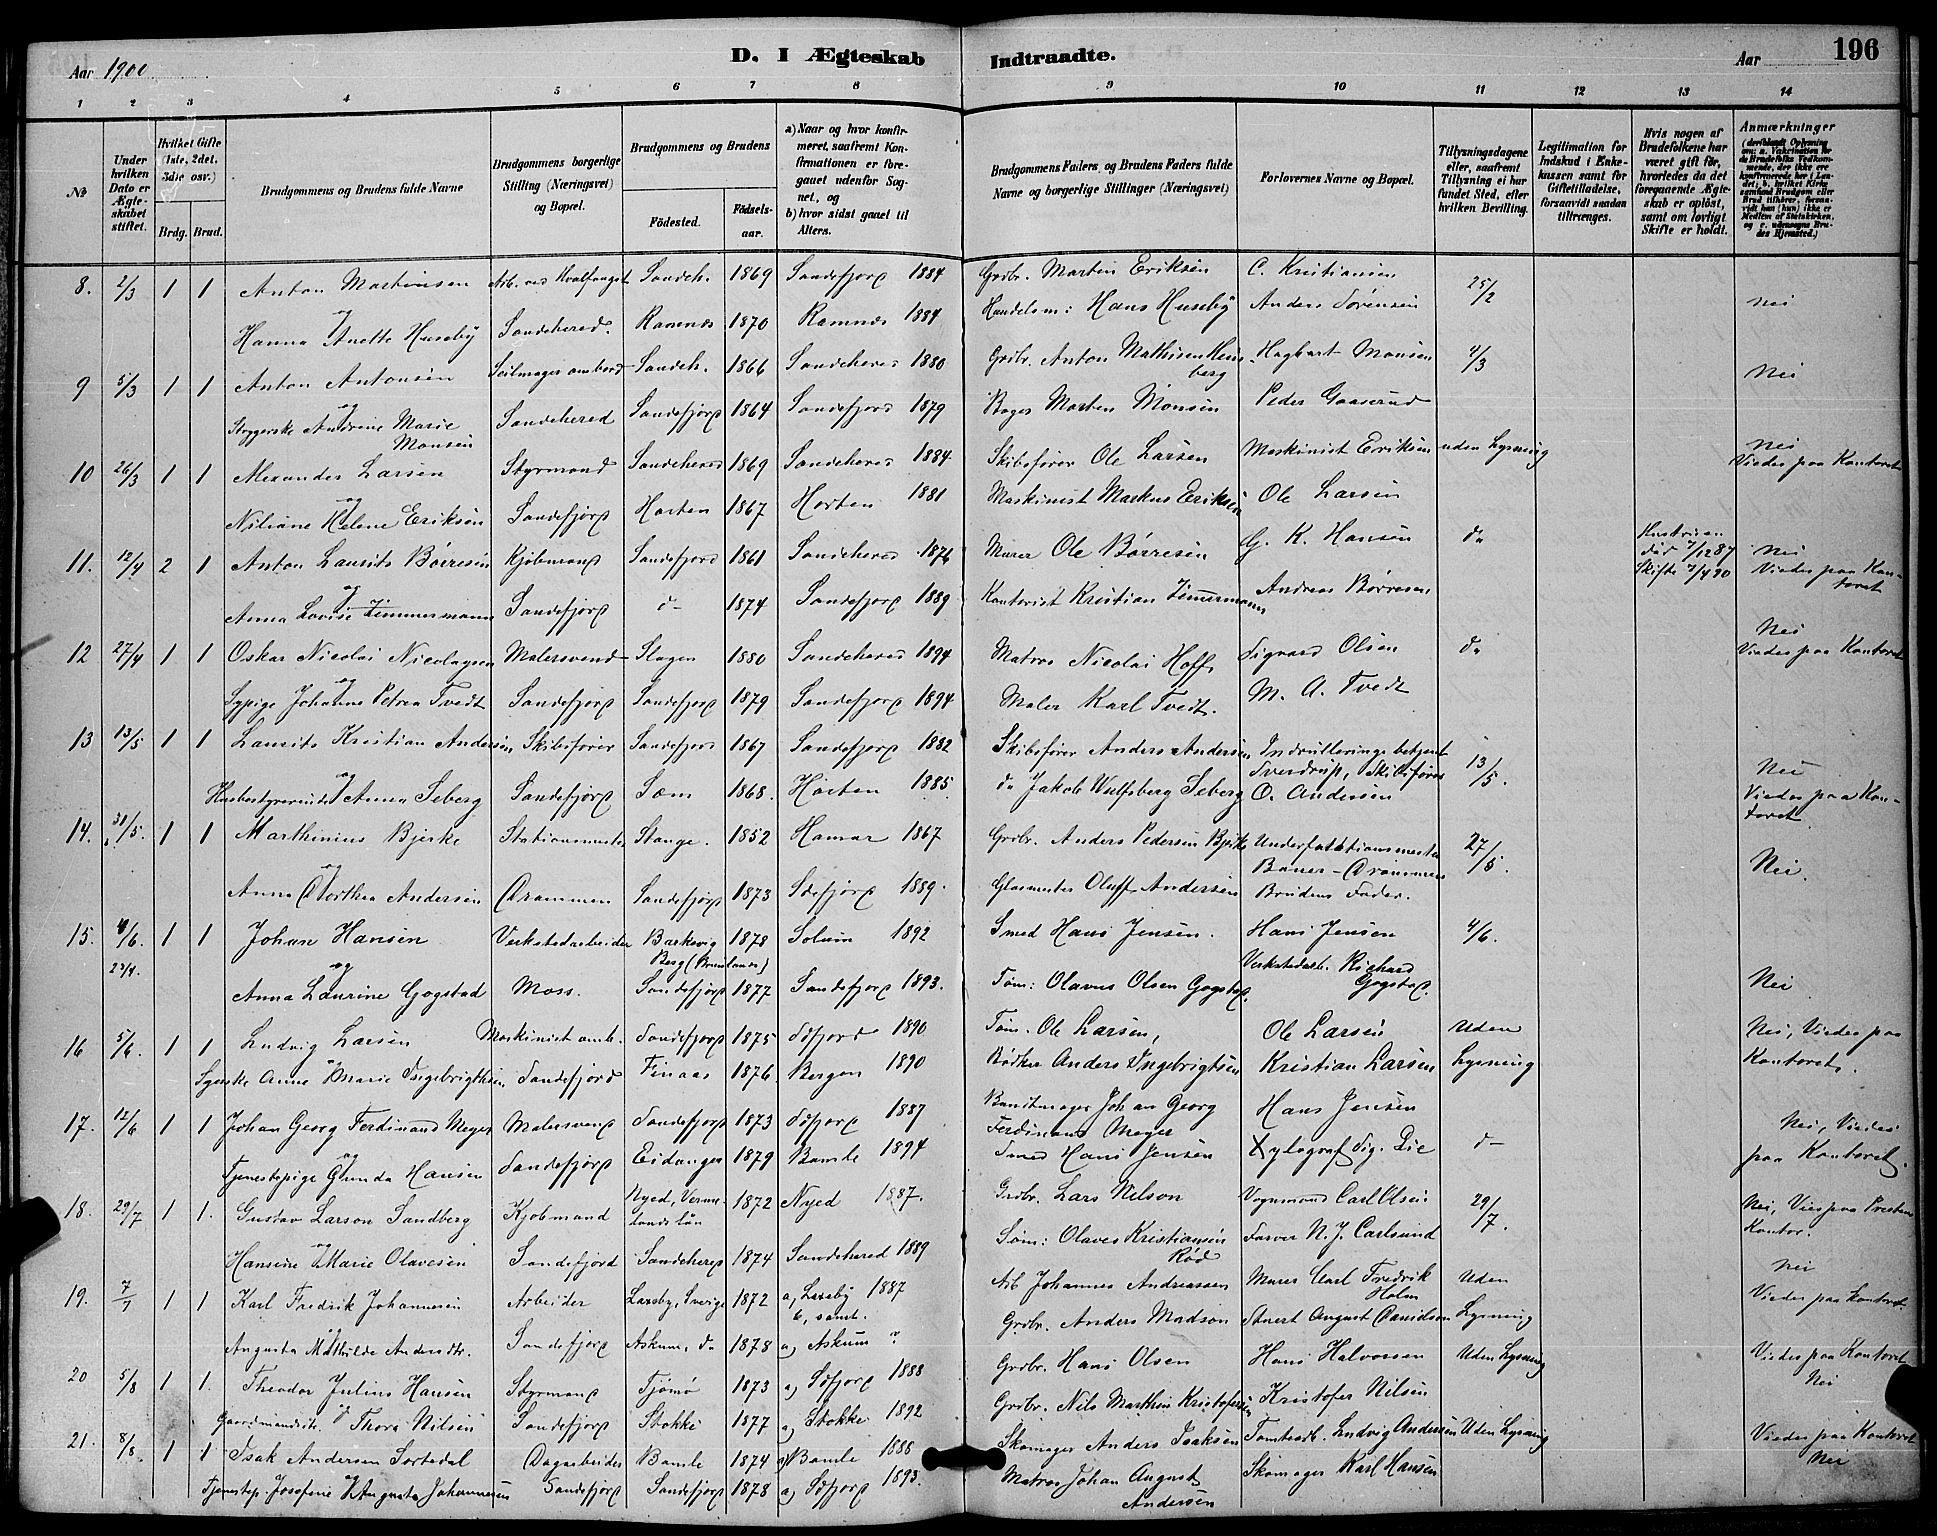 Aar 1900
D. I Ægteskab Indtraadte.
Aar
196
1 2 3 4 5 6 7 8 9 10 11 12 13 14
№
Under hvilken Dato er Ægteskabet stiftet.
Hvilket Gifte (1ste, 2det, 3die osv.)
Brdg. Brud.
Brudgommens og Brudens fulde Navne
Brudgommens borgerlige Stilling (Næringsvei) og Bopæl.
Brudgommens og Brudens
Fødested.
Fødsels-aar.
a) Naar og hvor konfirmeret, saafremt Konfirmationen er foregaaet udenfor Sognet, og
b) hvor sidst gaaet til Alters.
Brudgommens Faders og Brudens Faders fulde Navne og borgerlige Stillinger (Næringsvei)
Forlovernes Navne og Bopæl.
Tillysningsdagene eller, saafremt Tillysning ei har fundet Sted, efter hvilken Bevilling.
Legitimation for Indskud i Enkekassen samt for Giftetilladelse, forsaavidt saadan tiltrænges.
Hvis nogen af Brudefolkene har været gift før, hvorledes da det foregaaende Ægteskab er opløst, samt om lovligt Skifte er holdt.
Anmærkninger
8. 2/3 1 1 Anton Martinsen Arb. ved Hvalfanget Sandeh. 1869 Sandefjord 1884 Grdbr. Martin Eriksen C. Kristiansen 25/2
og
Hanna Anette Huseby Sandehered. Ramnes 1870 Ramnes 1884 Handelsm: Hans Huseby Anders Sørensen nei
9 5/3 1 1 Anton Antonsen Seilmager ombord Sandeh. 1866 Sandehered 1880 Grdbr. Anton Mathisen Hens berg Hagbart Monsen 4/3 Nei
og
Strygerske Andrine Marie Monsen Sandehered Sandefjord 1864 Sandefjord 1879 Bager Morten Monsen Peder Gaaserud
10 26/3 1 1 Alexander Larsen Styrmand Sandehered 1869 Sandehered 1884 Skibsfører Ole Larsen Maskinist Eriksen uden Lysning Nei Viedes paa Kontoret
og
Niliane Helene Eriksen Sandefjord Horten 1867 Horten 1881 Maskinist Markus Eriksen Ole Larsen
11. 12/4 2 1 Anton Laurits Børresen Kjøbmand Sandefjord 1861 Sandehered 1876 Murer Ole Børresen G. K. Hansen do Hustruen død 7/12 87 Skifte 7/4 90 Nei Viedes paa Kontoret
og
Anna Lovise Zimmermann Sandefjord do 1874 Sandefjord 1889 Kontorist Kristian Zimmermann Andreas Børresen
12 27/4 1 1 Oskar Nicolai Nicolaysen Malersvend Slagen 1880 Sandehered 1894 Matros Nicolai Hoff Sigvard Olsen do Nei Viedes paa Kontoret
og
Sypige Johanne Petrea Tvedt Sandefjord Sandefjord 1879 Sandefjord 1894 Maler Karl Tvedt. M. A. Tvedt
13 13/5 1 1 Laurits Kristian Andersen Skibsfører Sandefjord 1867 Sandefjord 1882 Skibsfører Anders Andersen Indrulleringsbetjent Sverdrup, Skibsfører 13/5. Nei
og
Husbestyrerinde Anna Seberg Sandefjord Sem 1868. Horten 1885. do Jakob Wulfsberg Seberg O. Andersen Viedes paa Kontoret
14. 31/5. 1 1 Marthinius Bjerke Stationsmester Stange. 1852 Hamar 1867 Grdbr. Anders Pedersen Bjerke Understationsmester Bauer - Drammen 27/5. Nei.
og
Anna Dorthea Andersen Drammen Sandefjord 1873 Sdefjord 1889. Glasmester Oluff Andersen Brudens Fader.
15. 4/6. 1 1 Johan Hansen Verkstedarbeider Barkevig 1878 Solum 1892 Smed Hans Jensen. Hans Jensen 4/6.
23/4. og Berg (Brunlanes)
Anna Laurine Gogstad Moss. Sandefjord 1877 Sandefjord 1893. Tøm: Olavus Olsen Gogstad. Verkstedarb. Richard Gogstad. Nei
16 5/6. 1 1 Ludvig Larsen Maskinist omb. Sandefjord 1875 Sdfjord 1890 Tøm. Ole Larsen, Ole Larsen Uden Nei, Viedes paa
og
Syerske Anne Marie Ingebrigthsen Sandefjord Finaas 1876. Bergen 1890 Bødker Anders Ingebrigtsen Kristian Larsen Lysning Kontoret.
17. 12/6 1 1 Johan Georg Ferdinand Meyer Malersvend Sandefjord 1873 Sdfjord 1887 Bundtmager Johan Georg Ferdinand Meyer Hans Jensen Nei, Viedes
og
Tjenestepige Gunda Hansen Sandefjord Eidanger 1879 Bamle 1894 Smed Hans Jensen Xylograf Sig. Lie do paa Kontoret.
18. 29/7 1 1. Gustav Larson Sandberg Kjøbmand Nyed, Vermelands län 1872 Nyed 1887. Grdbr. Lars Nilson Vognmand Carl Olsen 29/7. Nei, Vies paa Prestens Kontor.
og
Hansine Marie Olavesen Sandefjord Sandehered 1874 Sandehered 1889 Tøm: Olaves Kristiansen Rød Farver N. J. Carlsund nei
19. 7/7 1 1 Karl Fredrik Johannesen Arbeider Laxeby, Sverige 1872 a, Laxeby 1887 b, samt. Arb Johannes Andreassen Murer Carl Fredrik Holm Uden Viedes paa Kontoret
og
Augusta Mathilde Andersdtr. Sandefjord Askum, do 1878 a, Askum ? Grdbr. Anders Madson Stuert August Davidsen Lysning
20 5/8 1 1. Theodor Julius Hansen Styrmand Tjømø 1873 a, Sdfjord 1888 Grdbr. Hans Olsen Hans Halvorsen Uden Lysning Viedes paa Kontoret Nei
og
Gaardmandsdtr. Thora Nilsen Sandefjord Stokke 1877 a, Stokke 1892 Grdbr. Nils Marthin Kristofersen Kristofer Nilsen
21. 8/8. 1 1 Isak Andersen Sortedal Dagarbeider Bamle 1874 a, Bamle 1888 Skomager Anders Isaksen Tomtearb. Ludvig Andersen Uden Lysning Viedes paa Kontoret
og
Tjenestep. Josefine Augusta Johannesen Sandefjord Sandefjord 1878 a, Sdfjord 1893. Matros Johan August Andersen Skomager Karl Hansen Nei